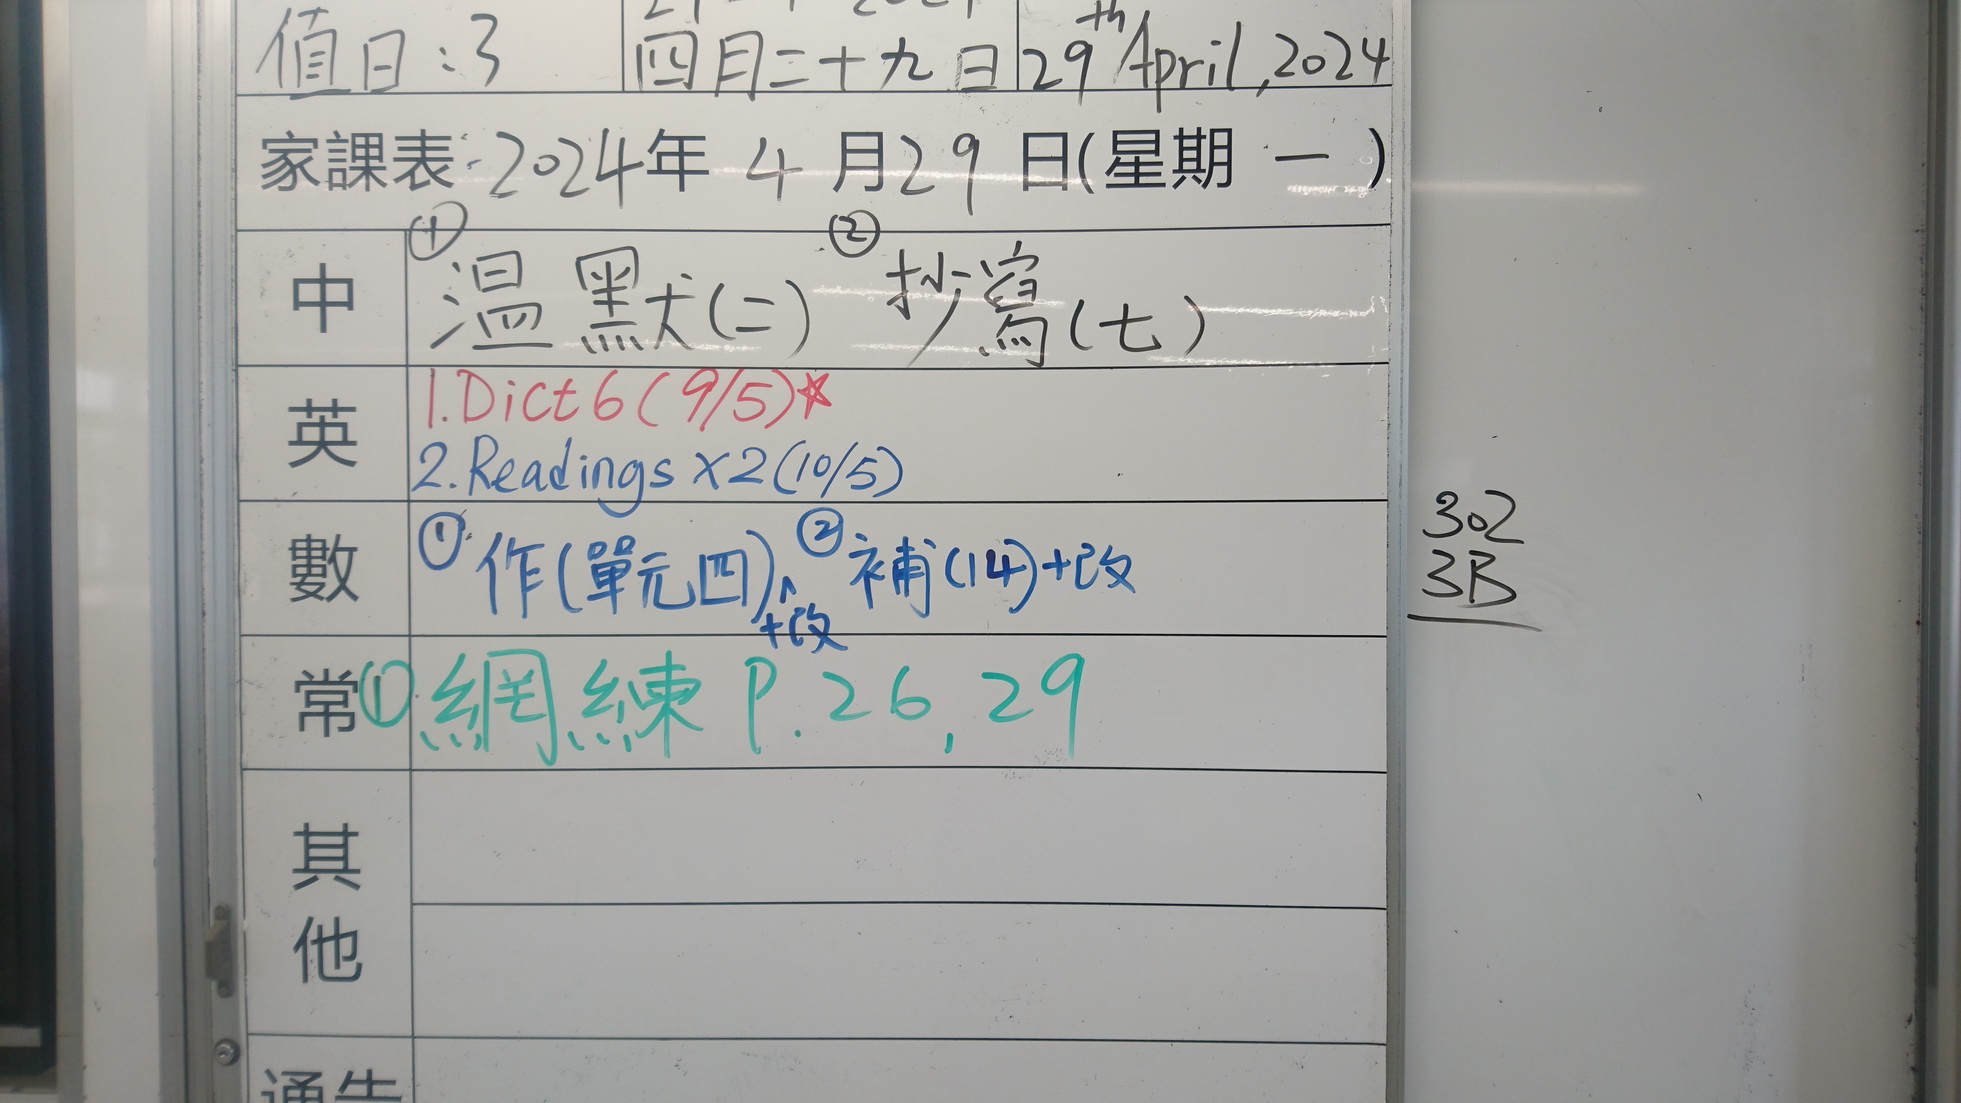 值日:3
四月二十九日
29th April, 2024
家課表: 2024年 4 月 29 日(星期 一 )
中 ① 温默(二) ② 抄寫(七)
英 1. Dict 6 (9/5)☆
2. Readings x2 (10/5)
數 ① 作(單元四)^ ② 補(14)+改
+改
常 ① 網練 P. 26, 29
其他
通告
302
3B